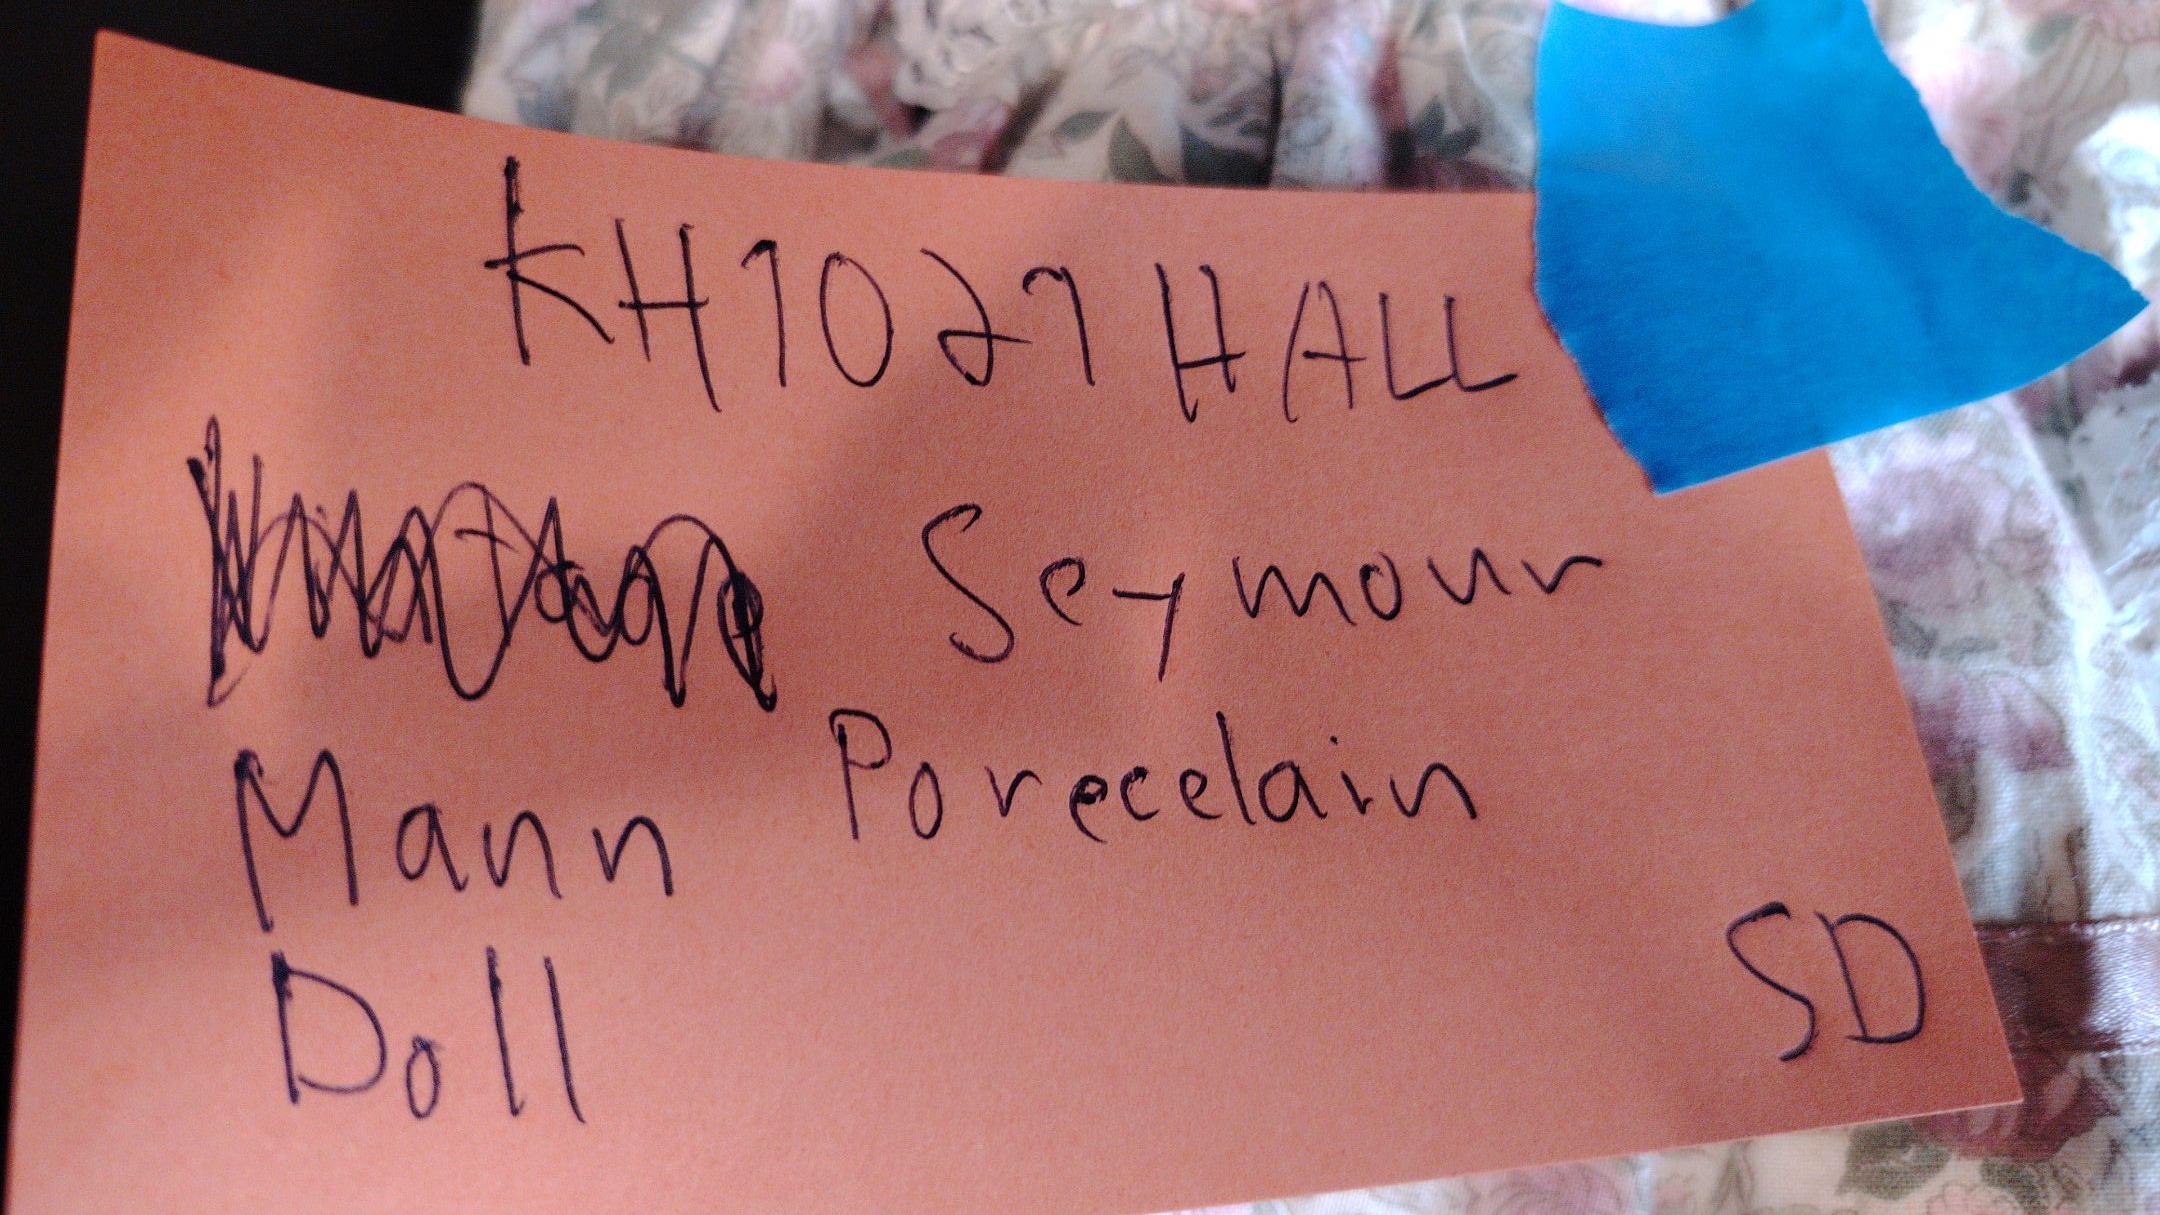 KH1027HALL
Seymour
Mann Porecelain
Doll
SD